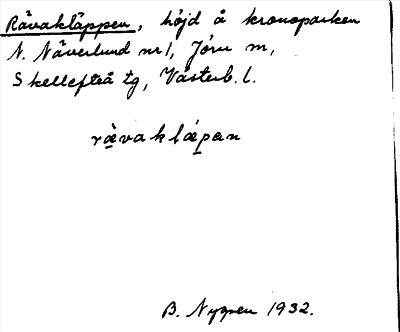 Rävakläppen, höjd å kronoparken
N. Näverlund nr 1, Jörn m,
Skellefteå tg, Västerb. l.
rævaklæpan
B. Nygren 1932.